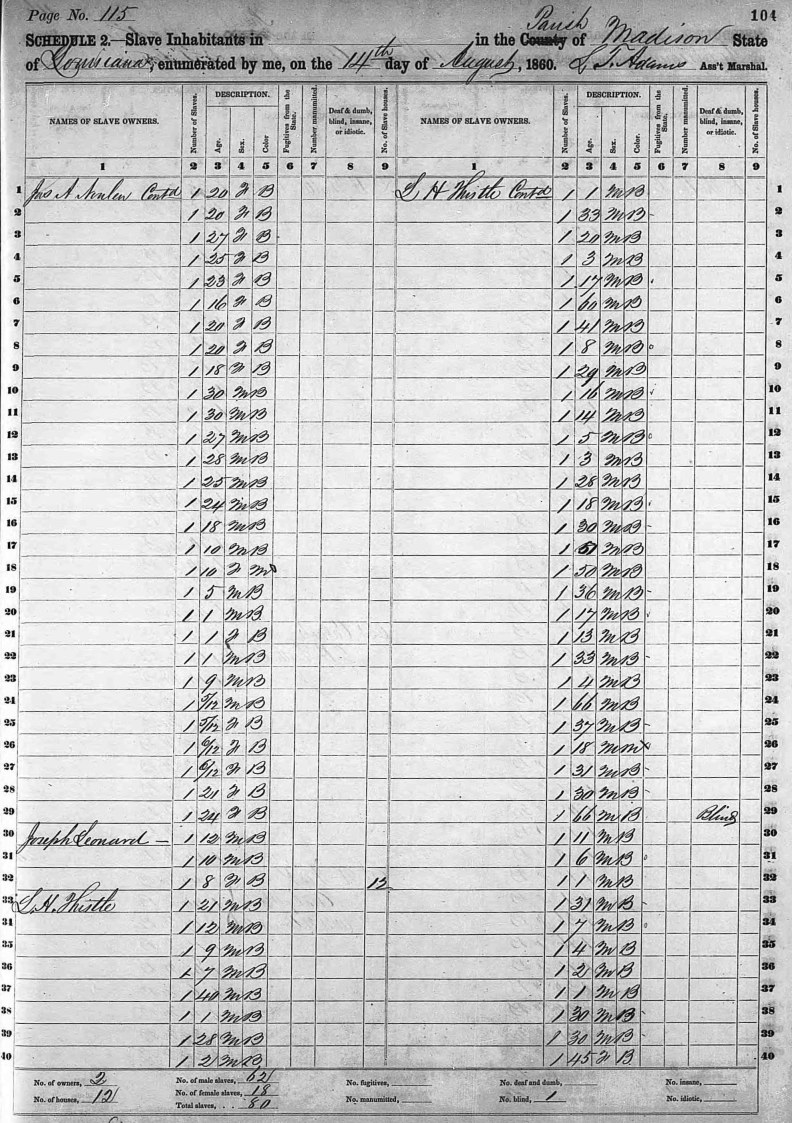 Page No. 115
104
SCHEDULE 2.—Slave Inhabitants in in the County Parish of Madison State
of Louisiana, enumerated by me, on the 14th day of August, 1860. L. T. Adams Ass't Marshal.
NAMES OF SLAVE OWNERS. Number of Slaves. DESCRIPTION. Age. Sex. Color. Fugitives from the State. Number manumitted. Deaf & dumb, blind, insane, or idiotic. No. of Slave houses. NAMES OF SLAVE OWNERS. Number of Slaves. DESCRIPTION. Age. Sex. Color. Fugitives from the State. Number manumitted. Deaf & dumb, blind, insane, or idiotic. No. of Slave houses.
1 2 3 4 5 6 7 8 9 1 2 3 4 5 6 7 8 9
1 Jas A Contd 1 20 F B L H Thistle Contd 1 1 M B 1
2 1 20 F B 1 33 M B 2
3 1 27 F B 1 20 M B 3
4 1 25 F B 1 3 M B 4
5 1 23 F B 1 17 M B 5
6 1 16 F B 1 60 M B 6
7 1 20 F B 1 41 M B 7
8 1 20 F B 1 8 M B 8
9 1 18 F B 1 29 M B 9
10 1 30 M B 1 16 M B 10
11 1 30 M B 1 14 M B 11
12 1 27 M B 1 5 M B 12
13 1 28 M B 1 3 M B 13
14 1 25 M B 1 28 M B 14
15 1 24 M B 1 18 M B 15
16 1 18 M B 1 30 M B 16
17 1 10 M B 1 51 M B 17
18 1 10 F M 1 50 M B 18
19 1 5 M B 1 36 M B 19
20 1 1 M B 1 17 M B 20
21 1 1 F B 1 13 M B 21
22 1 1 M B 1 33 M B 22
23 1 9 M B 1 4 M B 23
24 1 5/12 M B 1 66 M B 24
25 1 5/12 F B 1 37 M B 25
26 1 6/12 F B 1 18 M M 26
27 1 6/12 F B 1 31 M B 27
28 1 21 F B 1 30 M B 28
29 1 24 F B 1 66 M B Blind 29
30 Joseph Leonard — 1 12 M B 1 11 M B 30
31 1 10 M B 1 6 M B 31
32 1 8 F B 12 1 1 M B 32
33 L. H. Thistle 1 21 M B 1 31 M B 33
34 1 12 M B 1 7 M B 34
35 1 9 M B 1 4 M B 35
36 1 7 M B 1 2 M B 36
37 1 40 M B 1 1 M B 37
38 1 1 M B 1 30 M B 38
39 1 28 M B 1 30 M B 39
40 1 2 M B 1 45 F B 40
No. of owners, 2 No. of male slaves, 62 No. fugitives, No. deaf and dumb, No. insane,
No. of houses, 12 No. of female slaves, 18 No. manumitted, No. blind, 1 No. idiotic,
Total slaves, . . 80